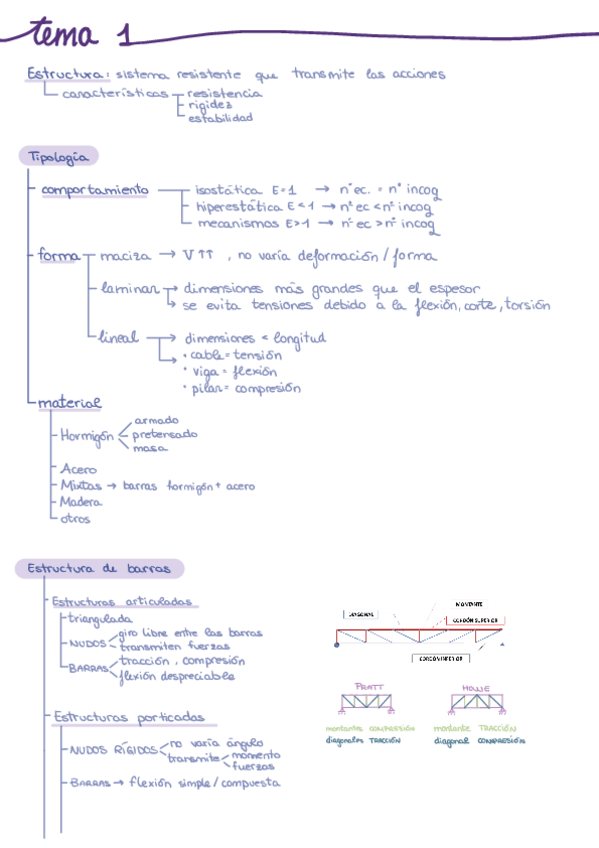 tema 1
Estructura: sistema resistente que transmite las acciones
características resistencia
rigidez
estabilidad
Tipología
comportamiento isostática E=1 → nº ec. = nº incog
hiperestática E<1 → nº ec < nº incog
mecanismos E>1 → nº ec > nº incog
forma maciza → V↑↑ , no varía deformación / forma
laminar → dimensiones más grandes que el espesor
↳ se evita tensiones debido a la flexión, corte, torsión
lineal → dimensiones < longitud
• cable = tensión
• viga = flexión
• pilar = compresión
material
Hormigón armado
pretensado
masa
Acero
Mixtas → barras hormigón + acero
Madera
otros
Estructura de barras
Estructuras articuladas
triangulada
NUDOS giro libre entre las barras
transmiten fuerzas
BARRAS tracción, compresión
flexión despreciable
MONTANTE
DIAGONAL
CORDÓN SUPERIOR
CORDON INFERIOR
PRATT
HOWE
montantes COMPRESIÓN
diagonales TRACCIÓN
montante TRACCIÓN
diagonal COMPRESIÓN
Estructuras porticadas
NUDOS RÍGIDOS no varía ángulo
transmite momento
fuerzas
BARRAS → flexión simple / compuesta